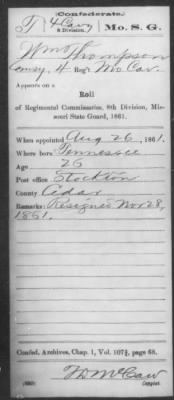 (Confederate.)
T 4 Cavy Mo. S. G.
8 Division.
Wm Thompson
Comsy, 4 Reg't Mo Cav.
Appears on a
Roll
of Regimental Commissaries, 8th Division, Mis-
souri State Guard, 1861.
When appointed Aug 26, 1861.
Where born Tennessee
Age 26
Post office Stockton
County Cedar
Remarks: Resigned Nov 28,
1861.
Confed. Archives, Chap. 1, Vol. 107½, page 68.
McCaw
Copyist.